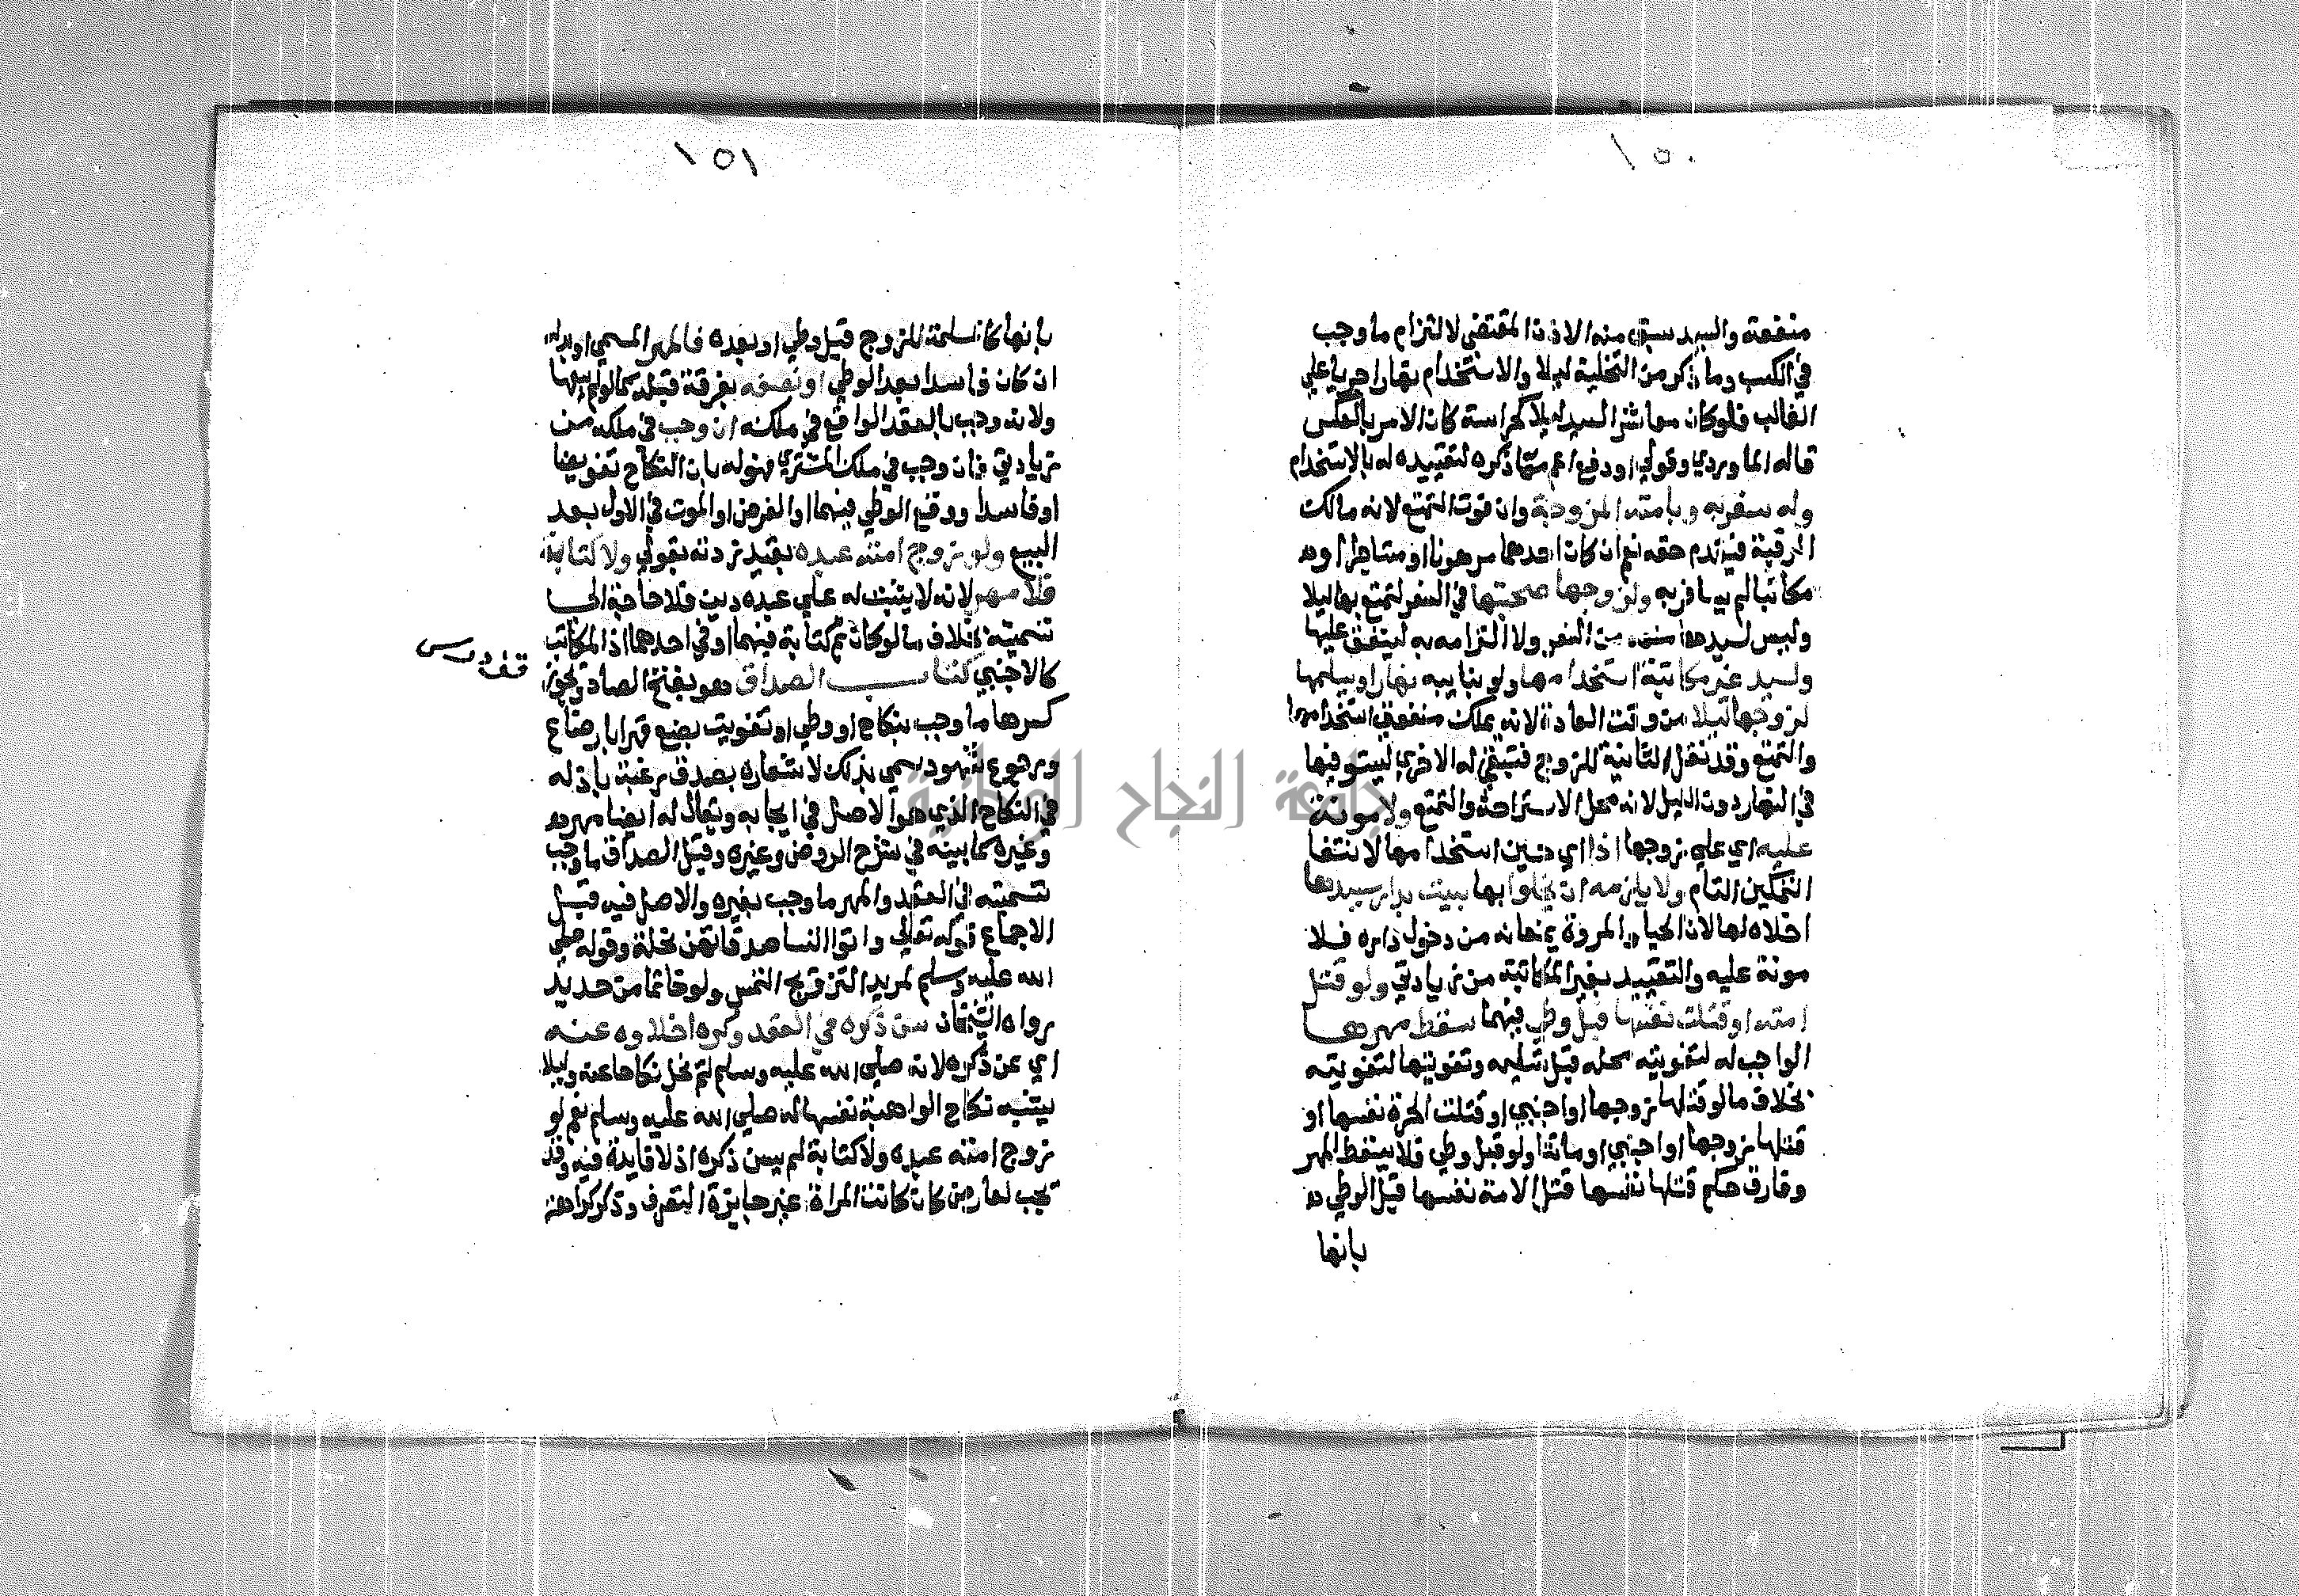 ١٥٠
منفعته والسيد سبق منه الاذن المقتضي لالتزام ما وجب
في الكسب وما ذكر من التخلية ليلا والاستخدام نهارا جريا علي
الغالب فلو كان معاش السيد ليلا كحراسة كان الامر بالعكس
قاله الماوردي وقولي او دفع اعم مما ذكره لتقييده له بالاستخدام
وله سفر به وبامته المزوجة وان فوت التمتع لانه مالك
الرقبة فيقدم حقه نعم ان كان احدهما مرهونا او مستاجرا او
مكاتبا لم يسافر به ولزوجها صحبتها في السفر لتمتع بها ليلا
وليس لسيدها منعه من السفر ولا الزامه به لينفق عليها
ولسيد غير مكاتبة استخدامها ولو بنايبه نهارا ويسلمها
لزوجها ليلا من وقت العادة لانه يملك منفعتي استخدامها
والتمتع وقد نقل الثانية للزوج فتبقي له الاخري ليستوفيها
في النهار دون الليل لانه محل الاستراحة والتمتع ولا مونة
عليه اي علي زوجها اذا اي حين استخدامها لانتفا
التمكين التام ولا يلزمه ان يخلوا بها ببيت بدار سيدها
اخلاه لها لان الحيا والمروة يمنعانه من دخول داره فلا
مونة عليه والتقييد بغير المكاتبة من زيادتي ولو قتل
امته او قتلت نفسها قبل وطي فيهما سقط مهرها
الواجب له لتفويته محله قبل تسليمه وتفويتها لتفويته
بخلاف ما لو قتلها زوجها او اجنبي او قتلت الحرة نفسها او
قتلها زوجها او اجنبي او ماتتا ولو قبل وطي فلا يسقط المهر
وفارق حكم قتلها نفسها قتل الامة نفسها قبل الوطي
بانها
١٥١
بانها كالمسلمة للزوج قبل وطي او بعده فالمهر المسمي او بدله
ان كان فاسدا بعد الوطي او نصفه بفرقة قبله كما لو لم يبعها
ولانه وجب بالعقد الواقع في ملكه ان وجب في ملكه من
زيادتي فان وجب في ملك المشتري فهو له بان النكاح تفويضا
او فاسدا ووقع الوطي فيهما او الفرض او الموت في الاول بعد
البيع ولو تزوج امته عبده بقيد زدته بقولي ولا كتابة
فلا مهر لانه لا يثبت له علي عبده دين فلا حاجة الي
تسميته بخلاف ما لو كان ثم كتابة فيهما او في احدهما اذ المكاتب
كالاجنبي كتاب الصداق هو بفتح الصاد ويجوز
كسرها ما وجب بنكاح او وطي او تفويت بضع قهرا كارضاع
ورجوع شهود سمي بذلك لاشعاره بصدق رغبة باذله
في النكاح الذي هو الاصل في ايجابه ويقال له ايضا مهر
وغيره كما بينته في شرح الروض وغيره وقيل الصداق ما وجب
بتسميته في العقد والمهر ما وجب بغيره والاصل فيه قبل
الاجماع قوله تعالي واتوا النسا صدقاتهن نحلة وقوله صلي
الله عليه وسلم لمريد التزويج التمس ولو خاتما من حديد
رواه الشيخان سن ذكره في العقد وكره اخلاوه عنه
اي عن ذكره لانه صلي الله عليه وسلم لم يخل نكاحا عنه وليلا
يشبه نكاح الواهبة نفسها له صلي الله عليه وسلم نعم لو
زوج امته عبده ولا كتابة لم يسن ذكره اذ لا فايدة فيه وقد
يجب لعارض كان كانت المراة غير جايزة التصرف وذكر كراهة